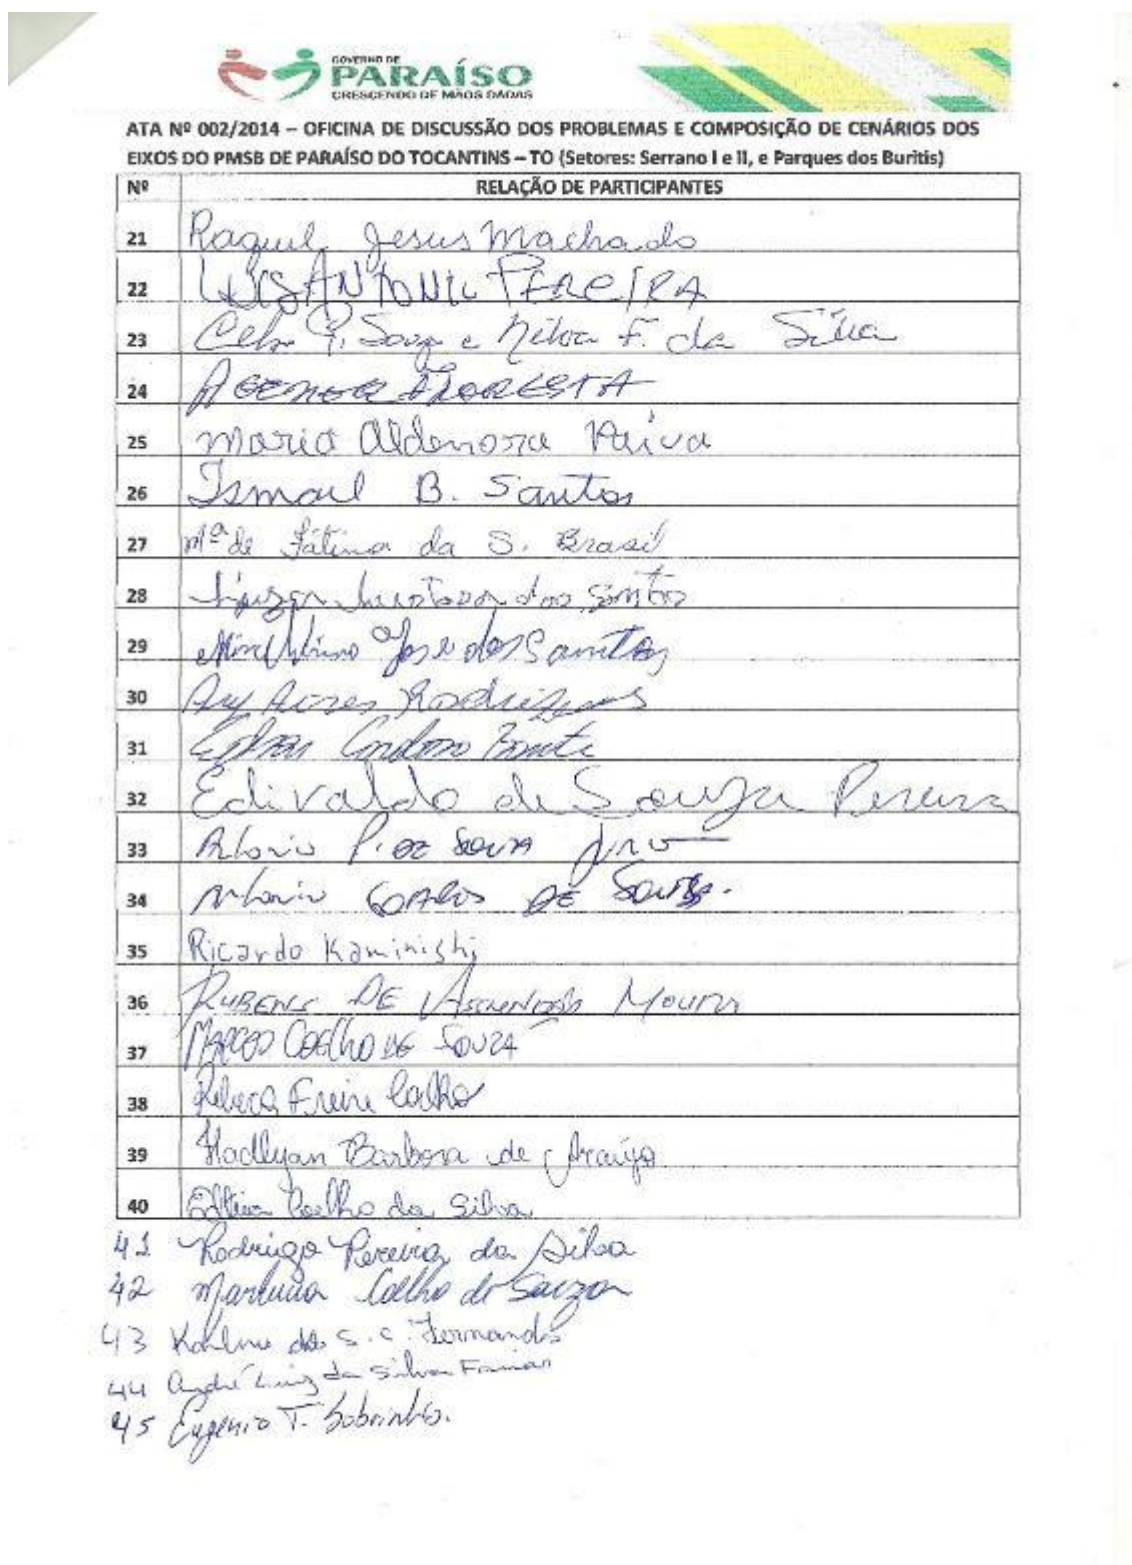 GOVERNO DE
PARAÍSO
CRESCENDO DE MÃOS DADAS
ATA Nº 002/2014 – OFICINA DE DISCUSSÃO DOS PROBLEMAS E COMPOSIÇÃO DE CENÁRIOS DOS
EIXOS DO PMSB DE PARAÍSO DO TOCANTINS – TO (Setores: Serrano I e II, e Parques dos Buritis)
Nº RELAÇÃO DE PARTICIPANTES
21 Raquel Jesus Machado
22 LUIS ANTONIO PEREIRA
23 Souza e Nilva F. da Silva
24 AGENOR FLORESTA
25 Maria Aldenora Paiva
26 Ismael B. Santos
27 Mª de Fátima da S. Brasil
28 dos Santos
29 José dos Santos
30 Ary Rodrigues
31 Cardoso
32 Edivaldo de Souza Pereira
33 P. DE SOUZA
34 Antonio CARLOS DE
35 Ricardo Kaminishi
36 RUBENS DE VASCONCELOS MOURA
37 MARCOS COELHO DE SOUZA
38 Rebeca Freire Coelho
39 Hadllyan Barbosa de Araújo
40 Coelho da Silva
41 Rodrigo Pereira da Silva
42 Coelho de Souza
43 S. C. Fernandes
44 André Luiz da Silva
45 Eugenio T. Sobrinho.